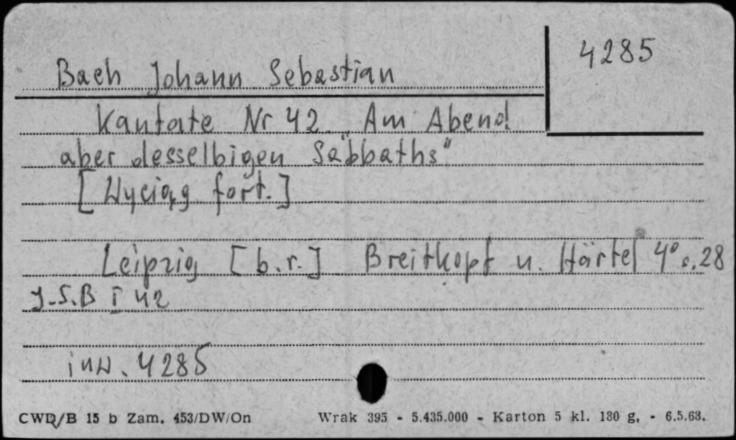 4285
Bach Johann Sebastian
Kantate Nr 42 "Am Abend
aber desselbigen Sabbaths"
[Wyciąg fort.]
Leipzig [b.r.] Breitkopf u. Härtel 4° s. 28
J.S.B I 42
inw. 4285
CWD/B 15 b Zam. 453/DW/On Wrak 395 - 5.435.000 - Karton 5 kl. 180 g, - 6.5.68.